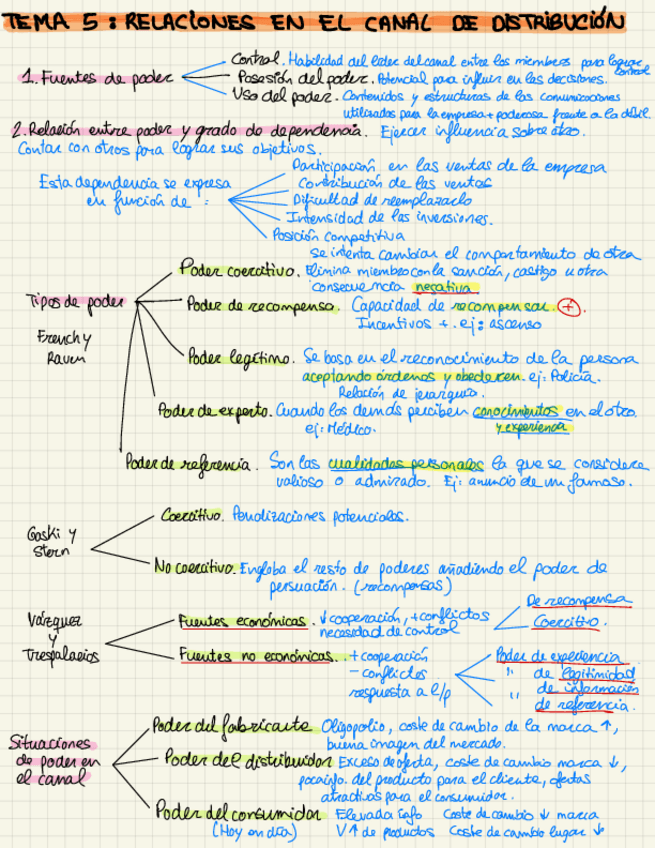 TEMA 5: RELACIONES EN EL CANAL DE DISTRIBUCIÓN
1. Fuentes de poder
Control. Habilidad del líder del canal entre los miembros para lograr control
Posesión del poder. Potencial para influir en las decisiones.
Uso del poder. Contenidos y estructuras de las comunicaciones
utilizados para la empresa + poderosa frente a la débil.
2. Relación entre poder y grado de dependencia. Ejercer influencia sobre otro.
Contar con otros para lograr sus objetivos.
Esta dependencia se expresa
en función de :
Participación en las ventas de la empresa
Contribución de las ventas
Dificultad de reemplazarlo
Intensidad de las inversiones.
Posición competitiva
Tipos de poder
French y
Raven
se intenta cambiar el comportamiento de otra
Poder coercitivo. Elimina miembro con la sanción, castigo u otra
consecuencia negativa.
Poder de recompensa. Capacidad de recompensar. +
Incentivos +. ej: ascenso
Poder legítimo. Se basa en el reconocimiento de la persona
aceptando órdenes y obedecen. ej: Policía.
Relación de jerarquía.
Poder de experto. Cuando los demás perciben conocimientos en el otro
ej: Médico. y experiencia
Poder de referencia. Son las cualidades personales la que se considera
valioso o admirado. Ej: anuncio de un famoso.
Gaski y
Stern
Coercitivo. Penalizaciones potenciales.
No coercitivo. Engloba el resto de poderes añadiendo el poder de
persuación. (recompensas)
Vázquez
y
Trespalacios
Fuentes económicas. ↓ cooperación, + conflictos
necesidad de control
De recompensa
Coercitivo.
Fuentes no económicas. + cooperación
- conflictos
respuesta a l/p
Poder de experiencia
" de legitimidad
" de información
de referencia.
Situaciones
de poder en
el canal
Poder del fabricante Oligopolio, coste de cambio de la marca ↑,
buena imagen del mercado.
Poder del distribuidor Exceso de oferta, coste de cambio marca ↓,
poca info. del producto para el cliente, ofertas
atractivas para el consumidor.
Poder del consumidor Elevada info Coste de cambio ↓ marca
(Hoy en día) V↑ de productos Coste de cambio lugar ↓